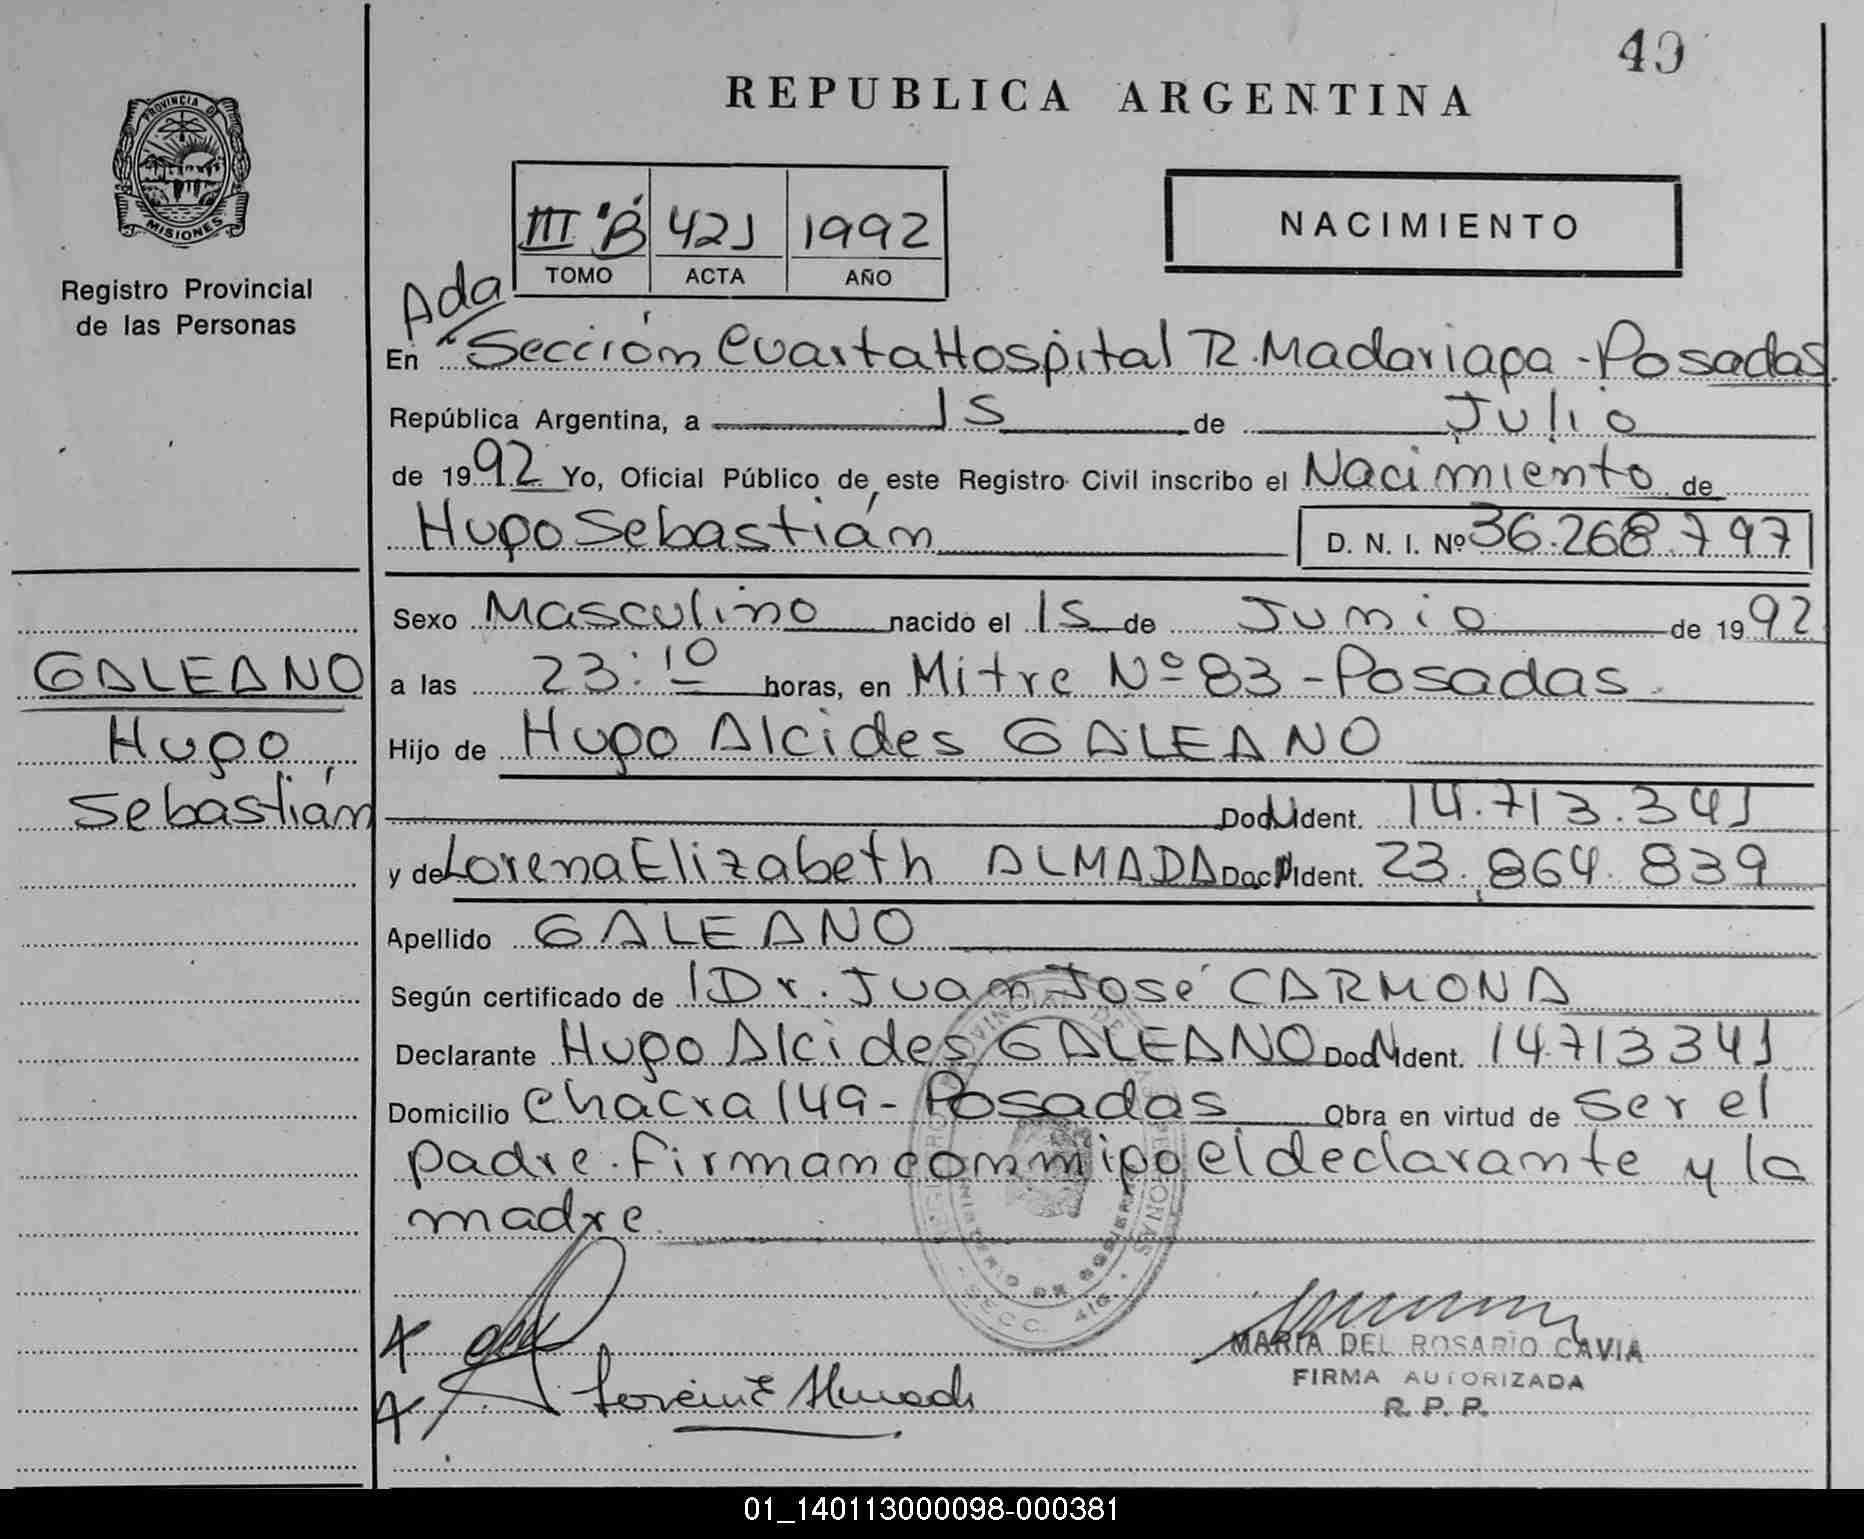 49
REPUBLICA ARGENTINA
PROVINCIA DE
MISIONES
Registro Provincial
de las Personas
III "B" 421 1992
TOMO ACTA AÑO
NACIMIENTO
Ada
En Sección Cuarta Hospital R. Madariaga - Posadas
República Argentina, a 15 de Julio
de 1992 Yo, Oficial Público de este Registro Civil inscribo el Nacimiento de
Hugo Sebastián D. N. I. Nº 36.268.797
Sexo Masculino nacido el 15 de Junio de 1992
GALEANO
a las 23:10 horas, en Mitre Nº 83 - Posadas
Hugo
Hijo de Hugo Alcides GALEANO
Sebastián
Doc. Ident. 14.713.341
y de Lorena Elizabeth ALMADA Doc. Ident. 23.864.839
Apellido GALEANO
Según certificado de Dr. Juan José CARMONA
Declarante Hugo Alcides GALEANO Doc. Ident. 14.713341
Domicilio Chacra 149 - Posadas Obra en virtud de ser el
padre. Firman conmigo el declarante y la
madre
MARIA DEL ROSARIO CAVIA
FIRMA AUTORIZADA
R. P. P.
01_140113000098-000381